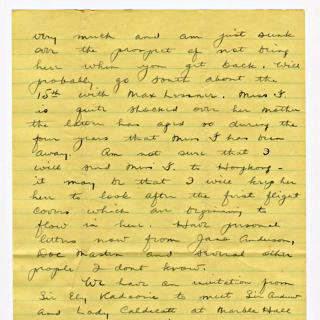 very much and am just sunk
over the prospect of not being
here when you get back. Will
probably go south about the
15th with Max Lissner. Miss I.
is quite shocked over her mother
the latter has aged so during the
four years that Miss I has been
away. Am not sure that I
will send Miss I. to Hongkong -
it may be that I will keep her
here to look after the first flight
covers which are beginning to
flow in here. Have personal
letters now from Jane Anderson,
Doc Martin and several other
people I don't know.
We have an invitation from
Sir Ely Kadoorie to meet Sir Andrew
and Lady Caldicott at Marble Hall